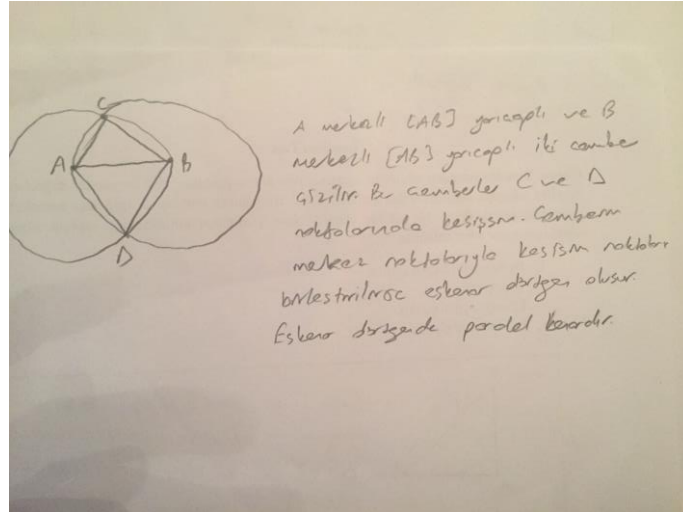 C
A
B
D
A merkezli [AB] yarıçaplı ve B
merkezli [AB] yarıçaplı iki çember
çizilir. Bu çemberler C ve D
noktalarında kesişsin. Çemberin
merkez noktalarıyla kesişim noktaları
birleştirilirse eşkenar dörtgen oluşur.
Eşkenar dörtgende paralel kenardır.